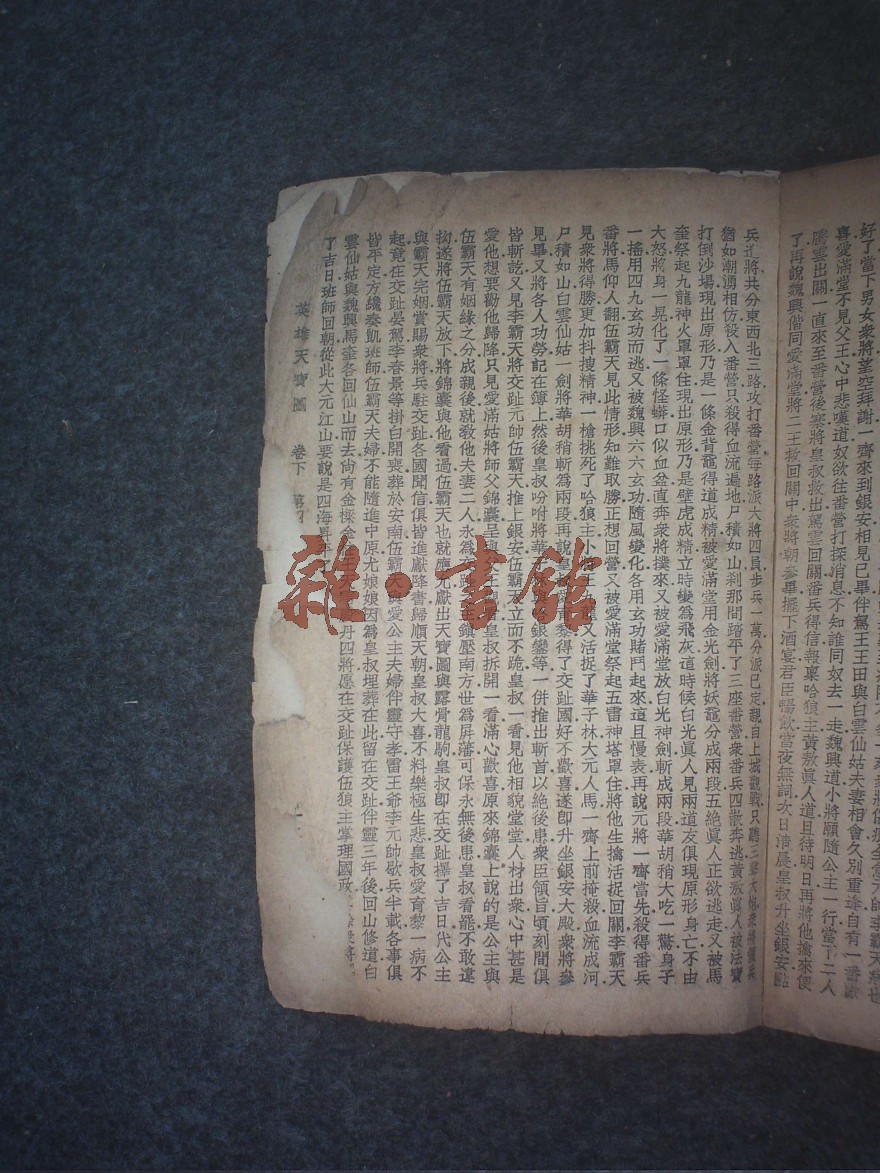 好了當下男女衆將望空拜謝一齊來到銀安相見已畢伴駕王王田與白雲仙姑夫妻相會久別重逢自有一番
喜愛滿堂不見父王心中悲嘆道奴欲往番營打探消息不知誰同奴去一走魏興道小將願隨公主一行當下二人
騰雲出關一直來至番營後寨將皇叔救出駕雲回關番兵得信報稟哈狼主黃敖眞人道且待明日再將他擒來便
了再說魏興偕同愛滿堂將二王救回關中衆將朝參畢擺下酒宴君臣暢飲當夜無詞次日清晨皇叔升坐銀安點
兵遣將共分東西北三路攻打番營每路派大將四員步兵一萬分派已定親自上城觀戰只聽三
猶如潮湧相仿殺入番營只殺得血流遍地尸積如山刹那間踏平了三座番營衆番兵四散奔逃黃敖眞人被法寶
打倒沙場現出原形乃是一條金背竈得道成精被愛滿堂用金光劍將妖竈分成兩段五絶眞人正欲逃走又被馬
奎祭起九龍神火罩罩住現出原形乃是壁虎成精立時變爲飛灰這時候白光眞人見兩道友俱現原形身亡不由
大怒將身一晃化了一條怪蟒口似血盆直奔衆將撲來又被愛滿堂放白光神劍斬成兩段華胡稍大吃一驚身子
一搖用四九玄功而逃又被魏興六六玄功隨風變化各用玄功賭鬥起來這且慢表再說元將一齊當先殺得番兵
番將馬仰人翻伍霸天見此情形知難取勝正想回營又被愛滿堂祭起五雷神塔罩住將他生擒活捉回關李霸天
見衆將得勝更加抖搜精神一槍挑死了哈狼主小九龍又活捉了華子林大元人馬一齊上前掩殺血流成河
尸積如山白雲仙姑一劍將華胡稍斬爲兩段再說皇叔愛育黎得了交趾國好不歡喜遂即升坐銀安大殿衆將參
見畢又將各人功勞記在簿上然後皇叔吩咐將華與銀鑾等一併推出斬首以絶後患衆臣領旨頃刻間俱
皆斬訖又見李霸天將交趾元帥伍霸天推上銀安伍霸天立而不跪皇叔一看見他相貌堂堂人材出衆心中甚是
愛他想要勸他歸降只見愛滿姑將師父錦囊呈與父王觀看皇叔拆開一看滿心歡喜原來錦囊上說的是公主與
伍霸天有姻緣之分成親後就敎他夫妻二人永爲交趾王鎮壓南方世爲屏藩可保永無後患皇叔看罷不敢違
拗遂將伍霸天放下將錦囊與他看過伍霸天也就應允獻出天寶圖與露骨龍駒皇叔卽在交趾擇了吉日代公主
與霸天完姻賞賜衆將兵駐交趾各國聞信俱皆進獻降書歸順天朝皇叔大喜不料樂極生悲皇叔愛育黎一病不
起竟在交趾晏駕李春景等掛白開喪葬於安南伍霸天與愛公主夫婦伴靈守孝雷王爺李元帥歇兵半載各事俱
皆平定方纔奏凱班師伍霸天夫婦不能隨進中原尤娘娘因爲皇叔埋葬在此留在交趾伴靈三年後回山修道白
雲仙姑與魏興馬奎各回仙山而去尙有金樑金丹四將愿在交趾保護伍狼主掌理國政
了吉日班師回朝從此大元江山要說是四海昇平
英雄天寶圖　卷下　第